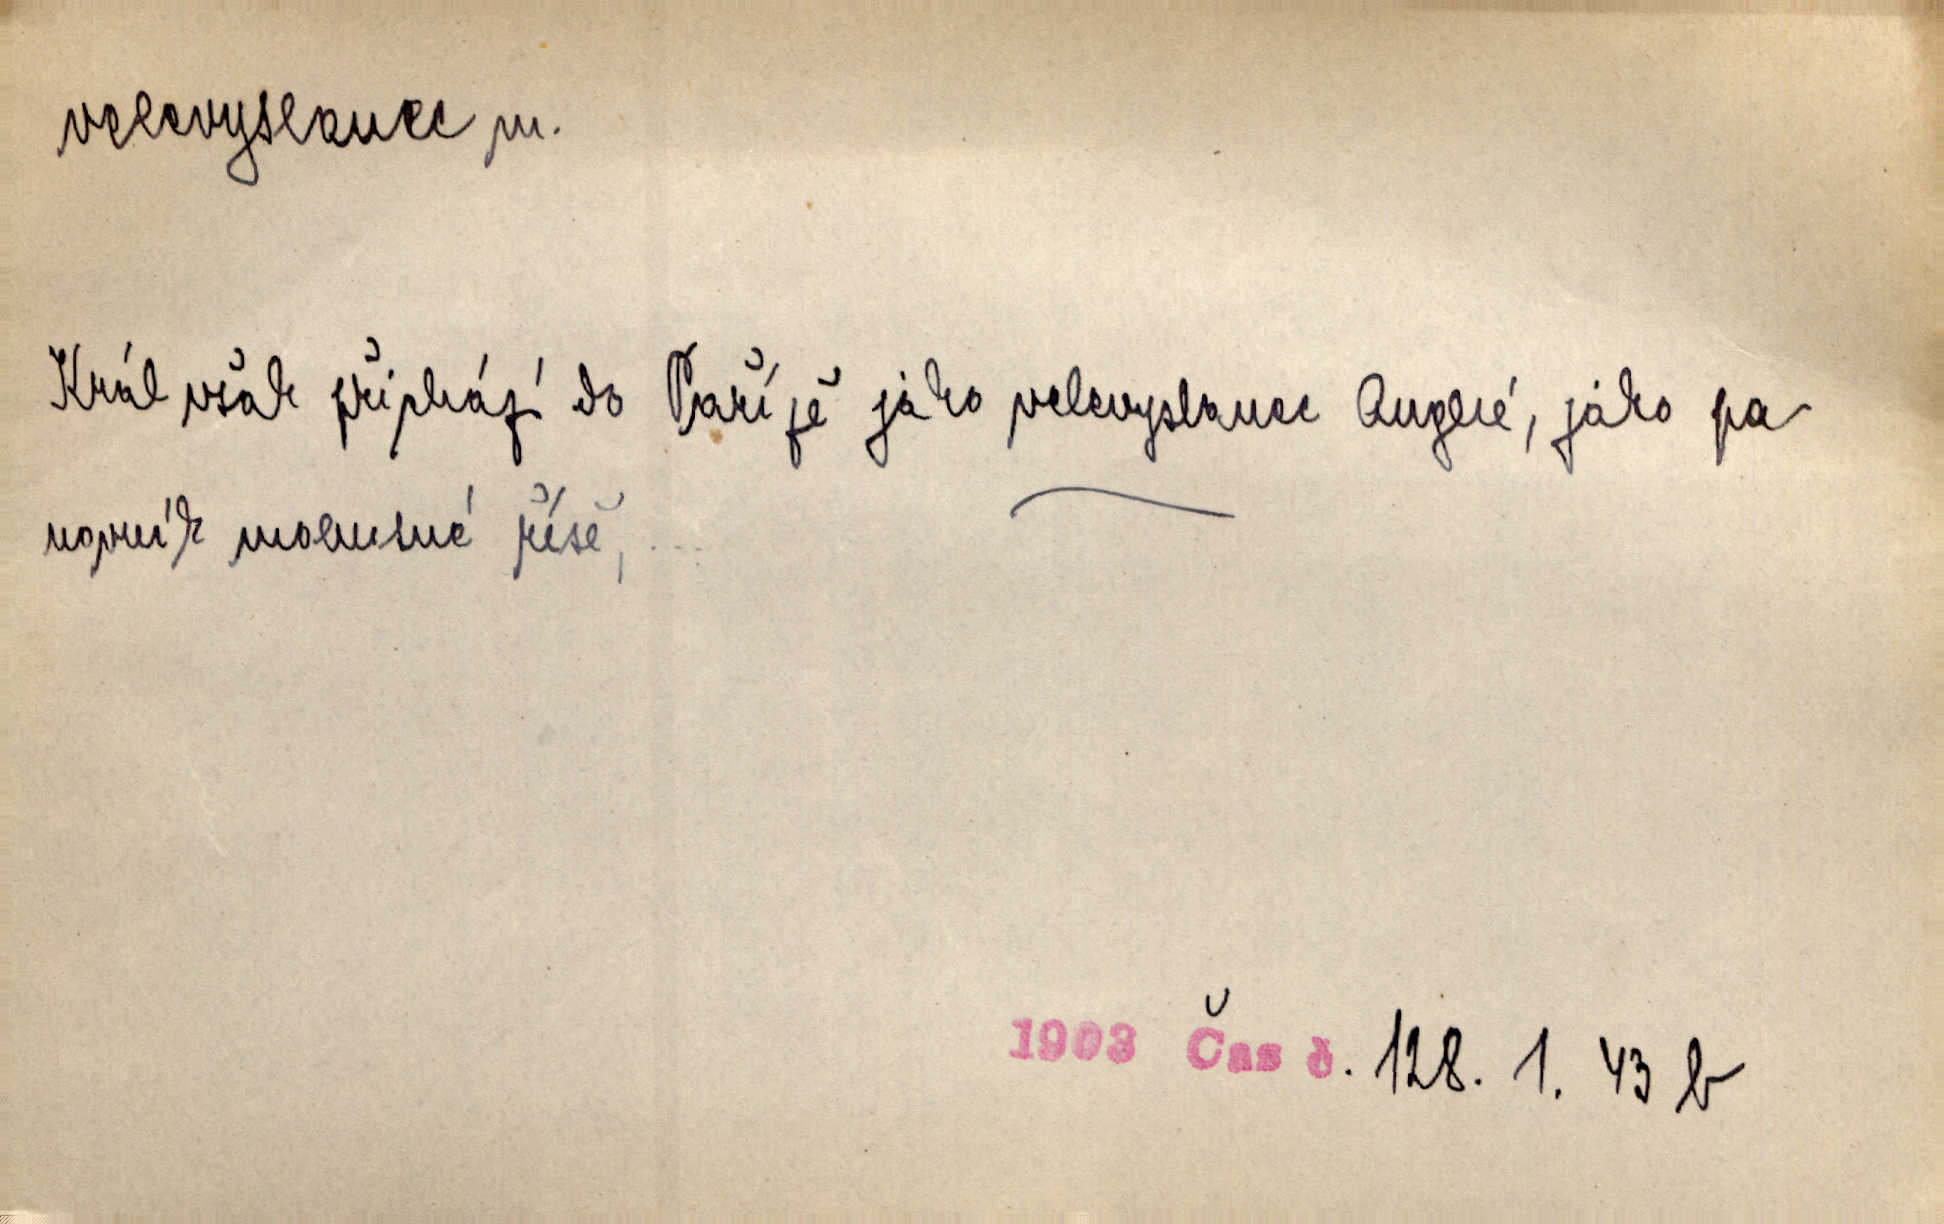 velevyslanec m.
Král však přichází do Paříže jako velevyslanec Anglie, jako pa-
novník mohutné říše, ...
1903 Čas č. 128. 1. 43 b